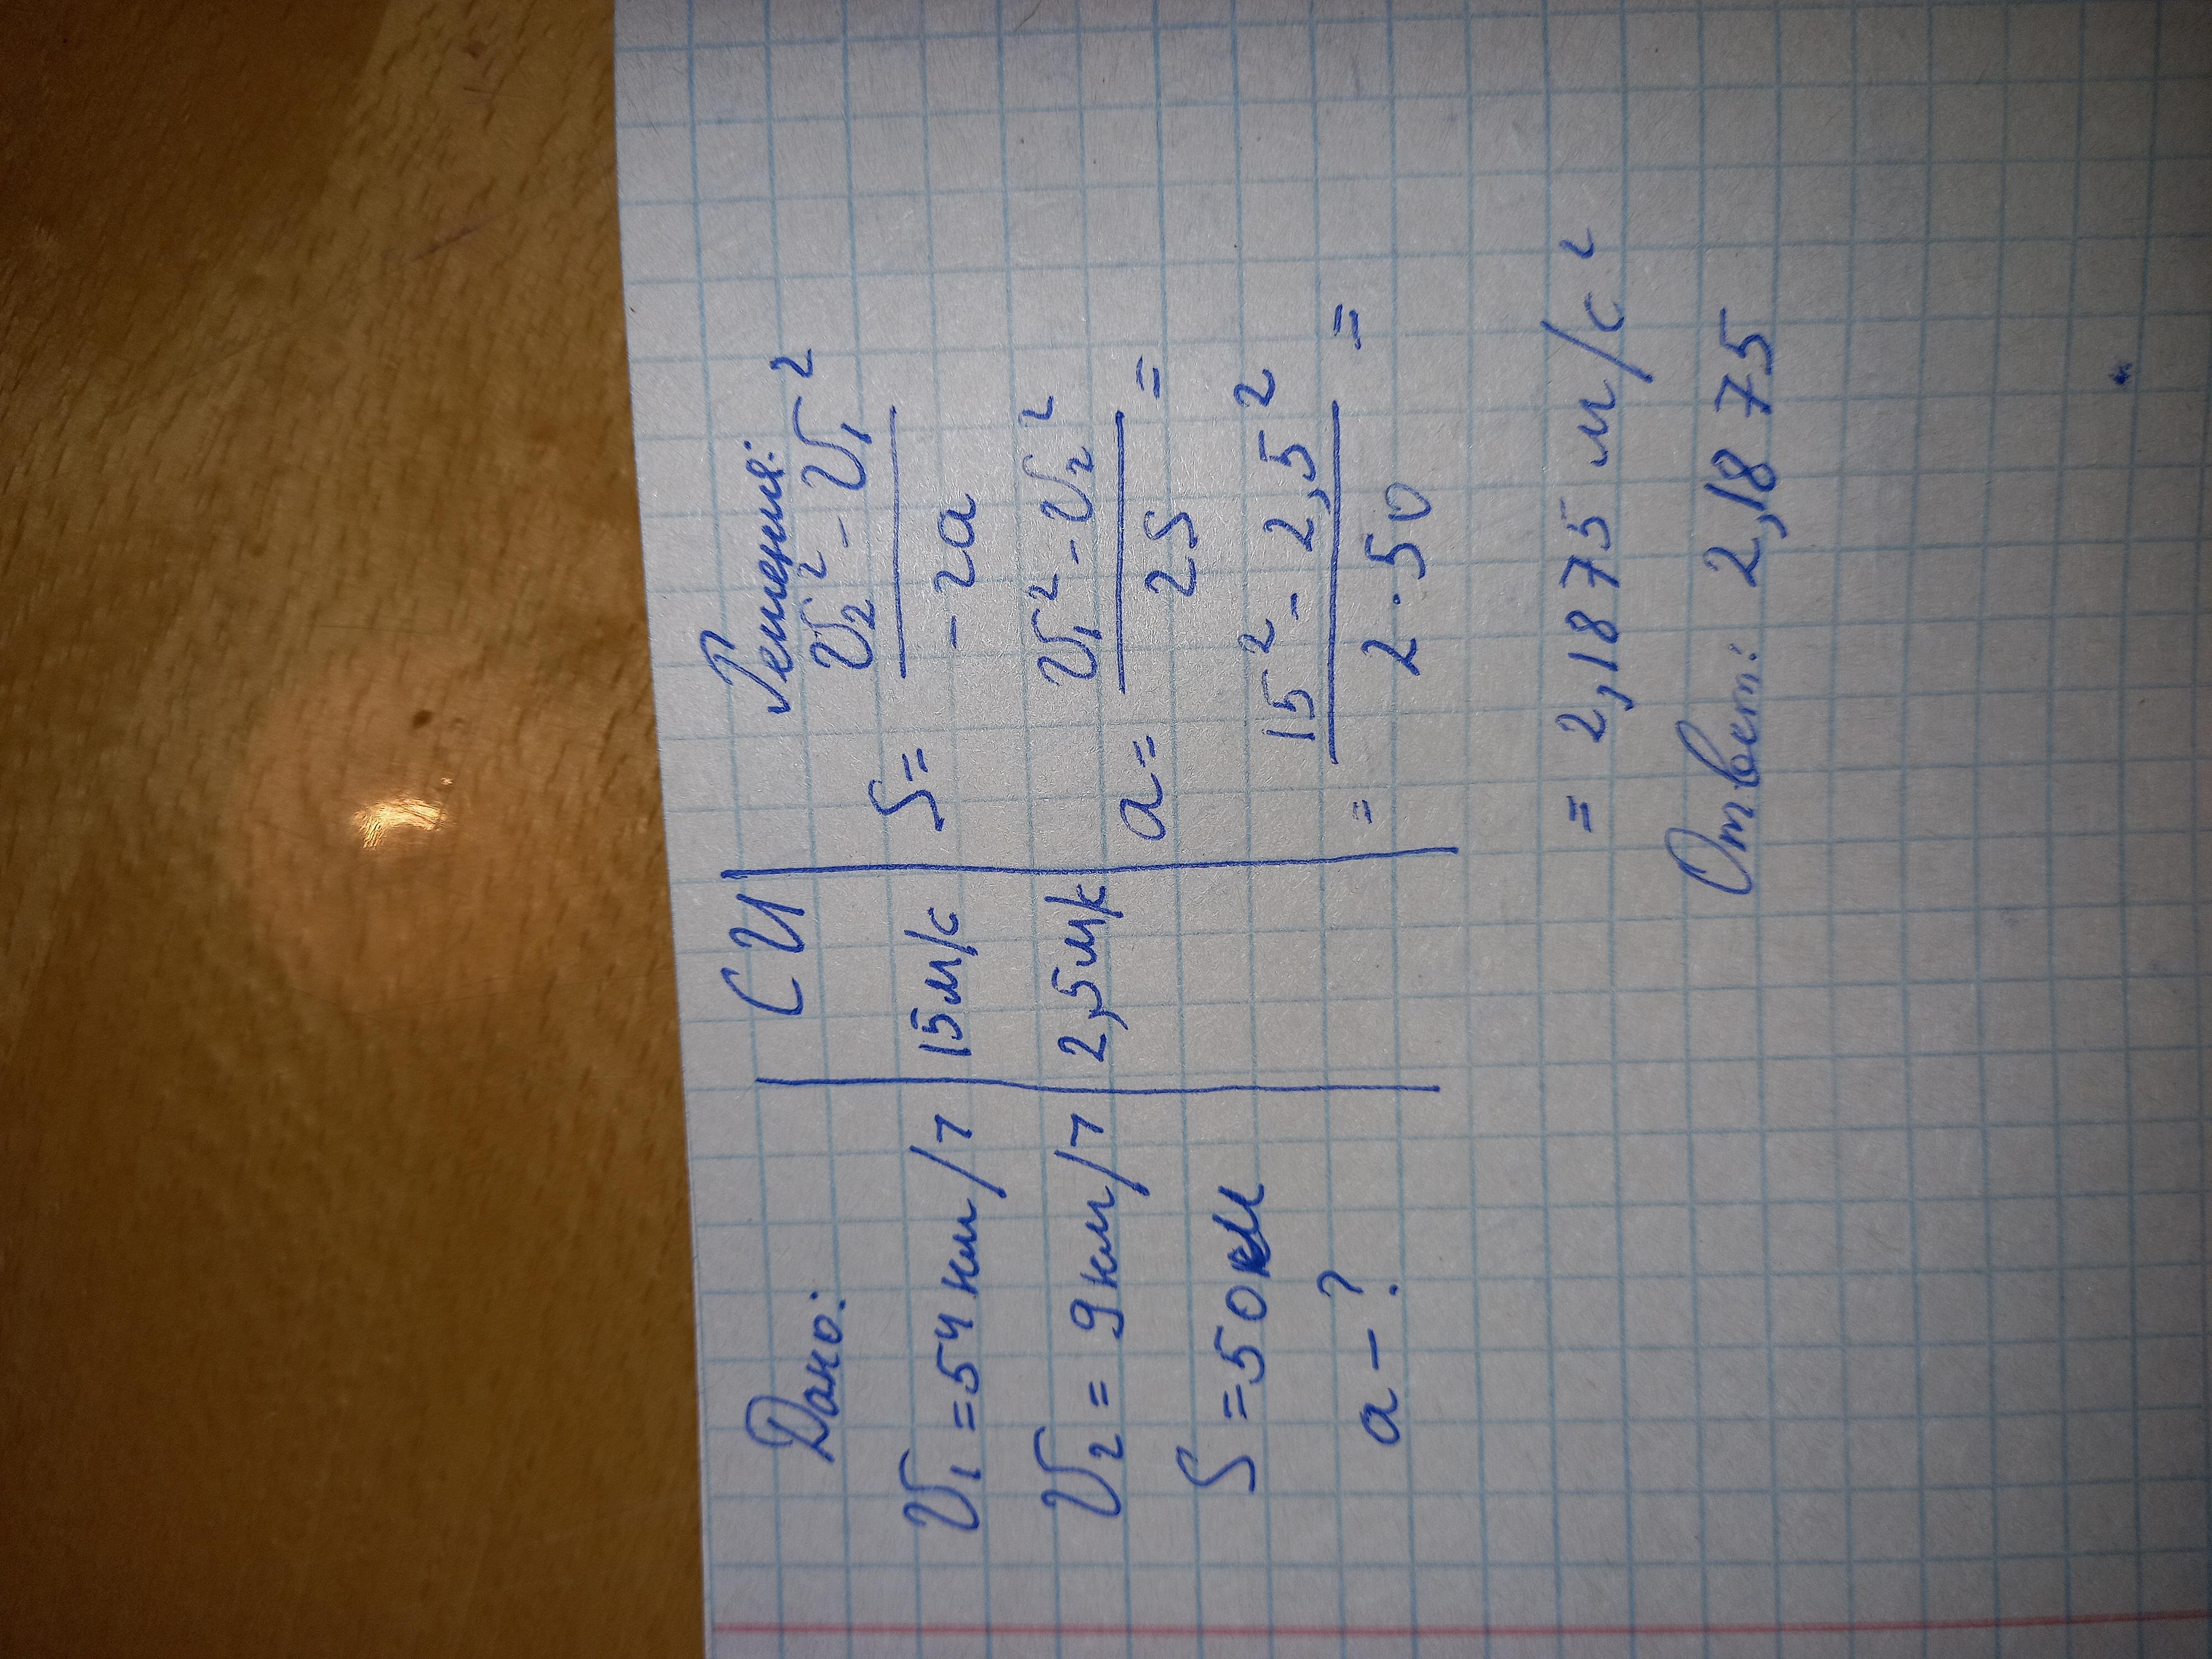 Дано:
υ₁ = 54 км/ч
υ₂ = 9 км/ч
S = 50 м
a - ?
СИ
15 м/с
2,5 м/с
Решения:
S = (υ₂² - υ₁²) / (-2a)
a = (υ₁² - υ₂²) / (2S) =
= (15² - 2,5²) / (2 · 50) =
= 2,1875 м/с²
Ответ: 2,1875